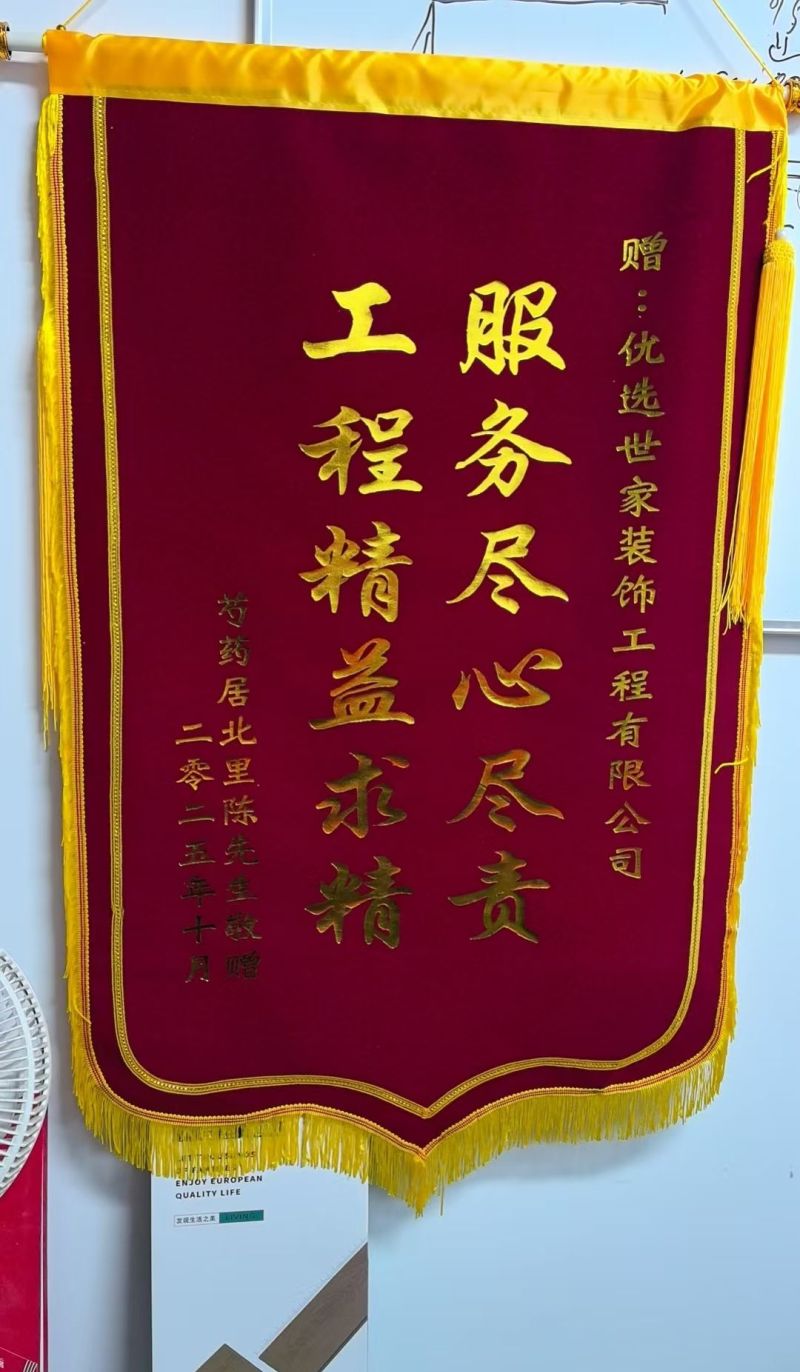 赠：优选世家装饰工程有限公司
服务尽心尽责
工程精益求精
芍药居北里陈先生敬赠
二零二五年十月
ENJOY EUROPEAN
QUALITY LIFE
发现生活之美 LIVING